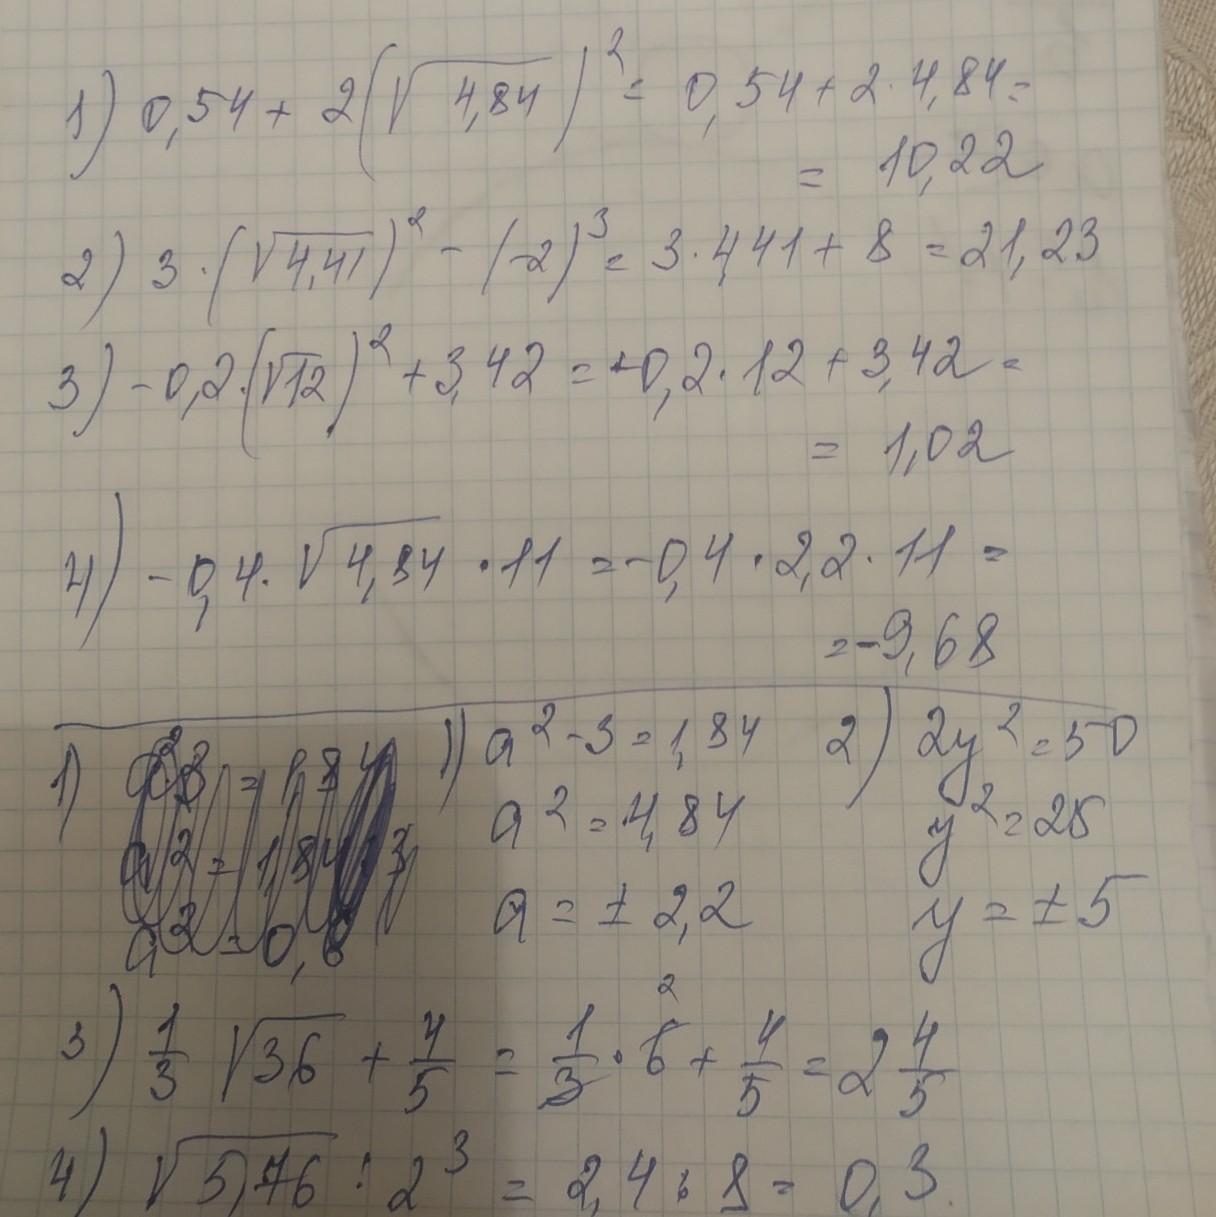 1) 0,54 + 2(√4,84)² = 0,54 + 2 · 4,84 =
= 10,22
2) 3 · (√4,41)² - (-2)³ = 3 · 4,41 + 8 = 21,23
3) -0,2 · (√12)² + 3,42 = -0,2 · 12 + 3,42 =
= 1,02
4) -0,4 · √4,84 · 11 = -0,4 · 2,2 · 11 =
= -9,68
1) 1) a² - 3 = 1,84 2) 2y² = 50
a² = 4,84 y² = 25
a = ± 2,2 y = ± 5
3) 1/3 √36 + 4/5 = 1/3 · 6 + 4/5 = 2 4/5
4) √5,76 : 2³ = 2,4 : 8 = 0,3.